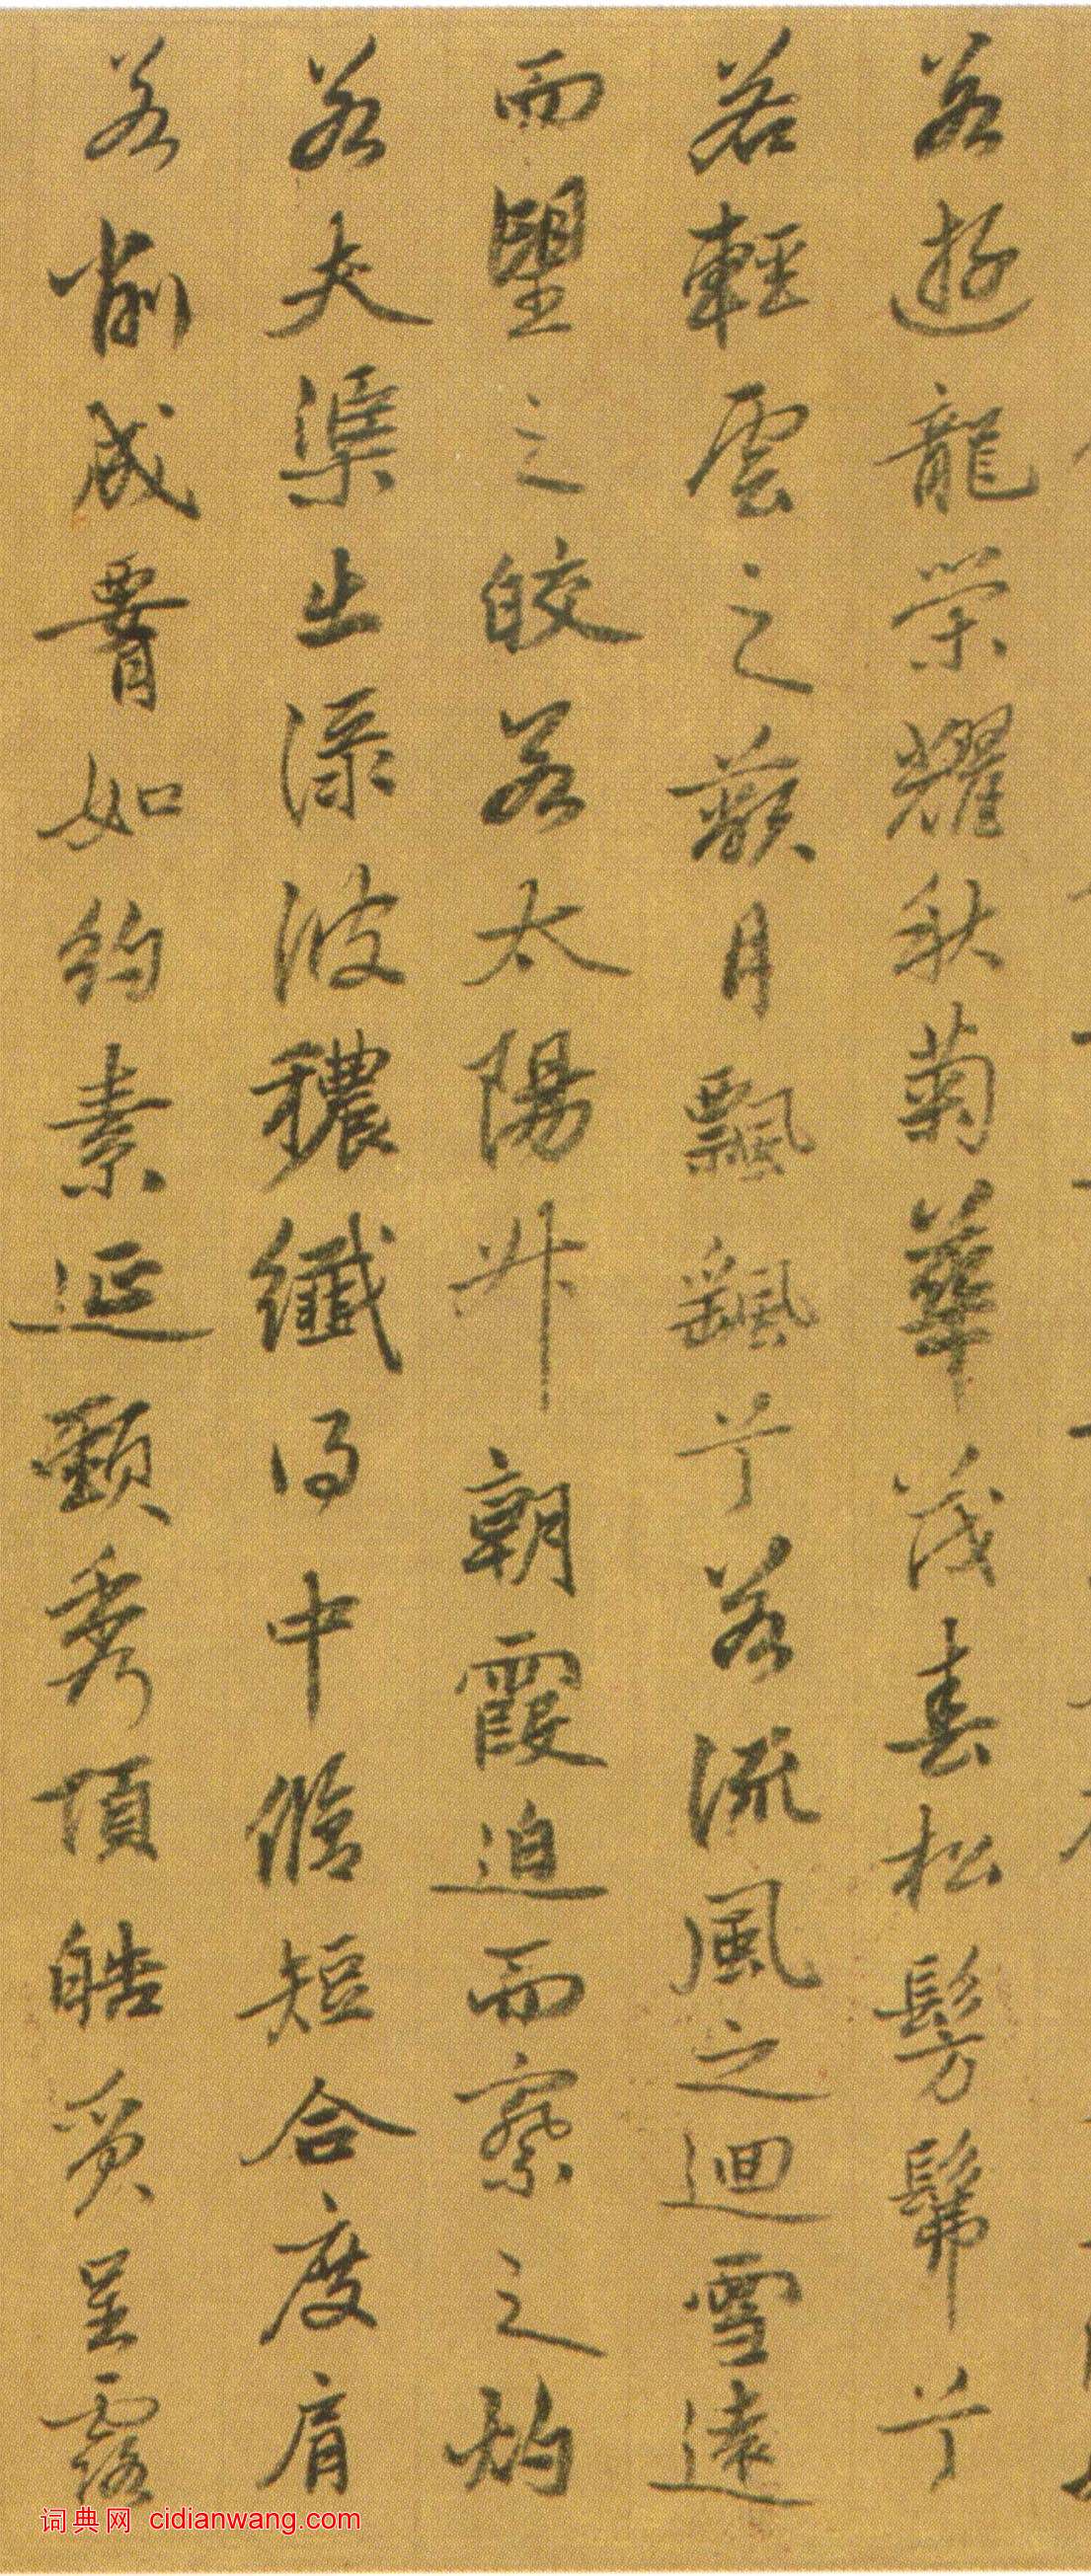 若遊龍榮耀秋菊華茂春松髣髴兮
若輕雲之蔽月飄颻兮若流風之迴雪遠
而望之皎若太陽升朝霞迫而察之灼
若夫渠出淥波穠纖得中脩短合度肩
若削成腰如約素延頸秀項皓質呈露
词典网 cidianwang.com